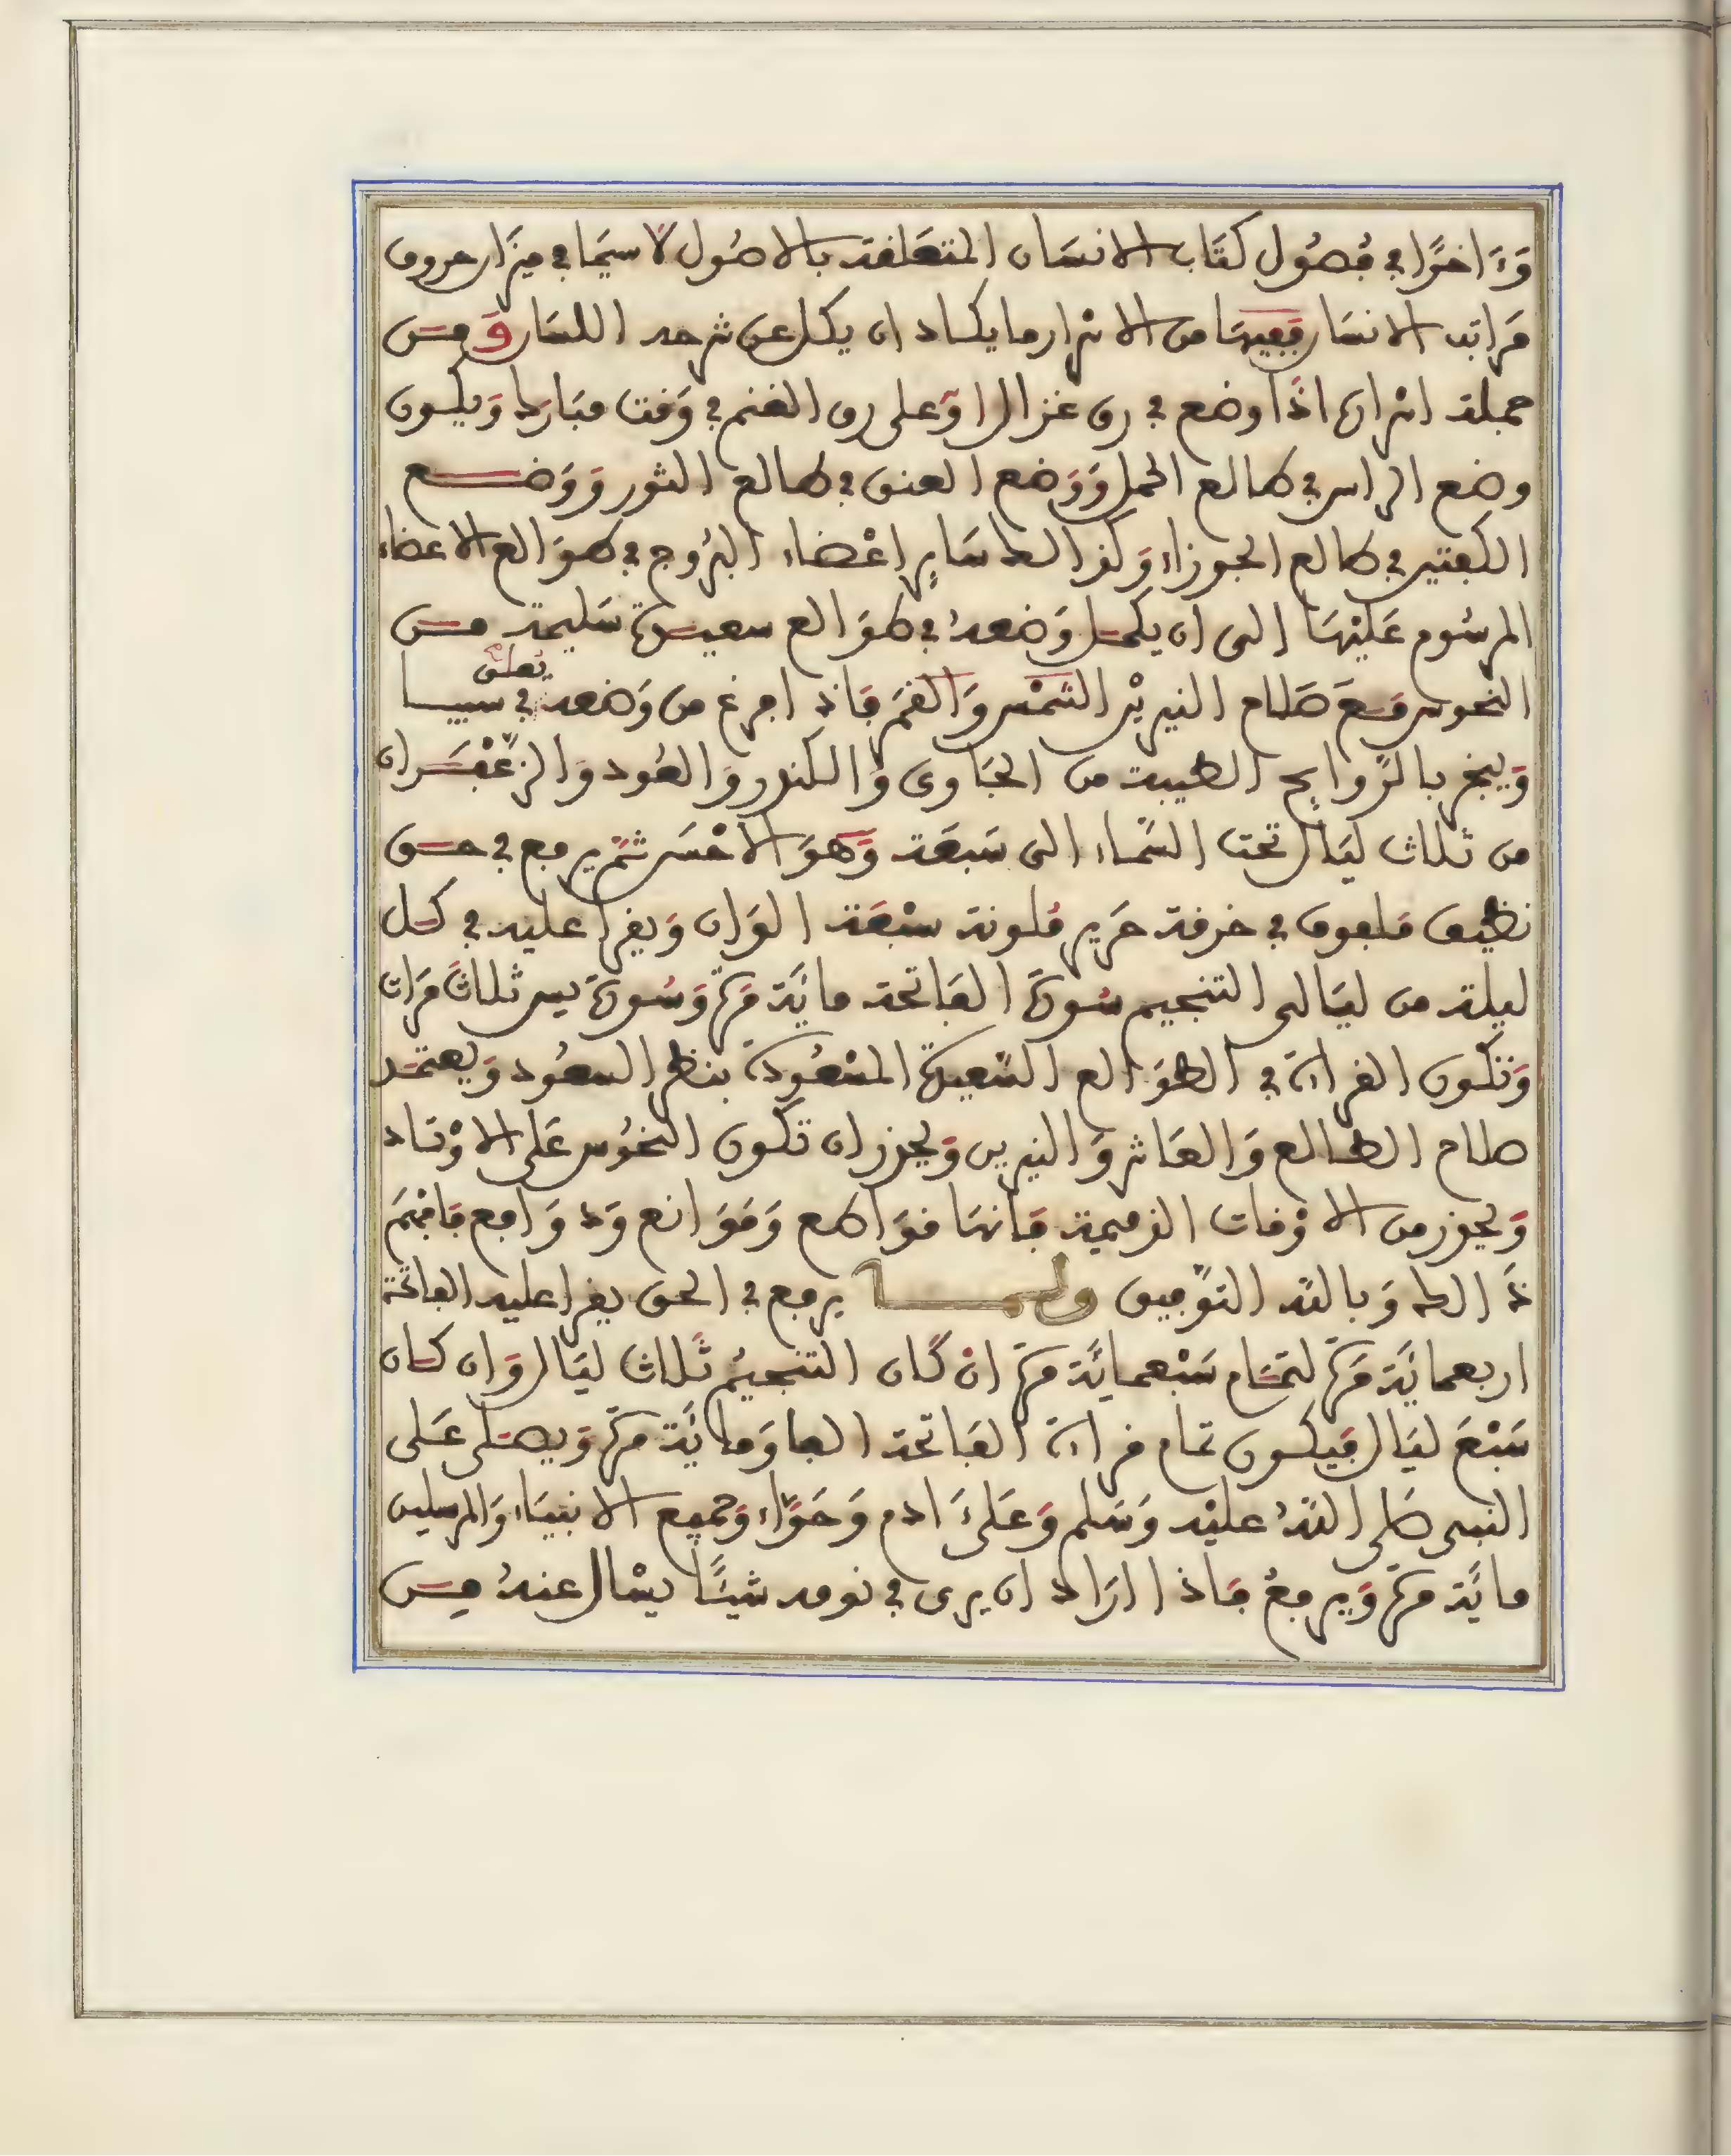 وَءَاخرًا في فُصُول كتَاب الانسَان المتعَلقة بالاصُول لا سيمَا في ميزَان حروف
مَراتب الانسَان فَفِيهَا من الاسْرار ما يكاد ان يكل عن شرحه اللسَان وَمن
جملة اسْرارها اذَا وضع في رق غزال اوْ على رق الغنم في وَقت مبَارك وَيكون
وضع الراس في طالع الحمل وَوَضع العنق في طالع الثور وَوَضع
الكتفين في طالع الجوزاء وَكذالك سَاير اعْضاء البرُوج في طوَالع الاعضاء
المرسُوم عَليْهَا الى ان يكمل وَضعهُ في طوَالع سعيدة سَليمة من
النحوس مَعَ صَلاح النيريْن الشمْس وَالقمَر فَاذا فرغ من وَضعه في سيبا
تعلق
وَيبخر بالرَّوايح الطيبة من الجَاوى وَالكندر وَالعُود وَالزعْفَران
من ثلاث ليَال تحت السَّماء الى سَبعَة وَهوَ الاحْسَن ثمَّ يرفع في حق
نظيف مَلفوف في خرقة حَرير مُلونة سبْعَة الوَان وَيقرا عليه في كل
ليلة من ليَالى التنجيم سُورَة الفَاتحة مائَة مَرة وَسُورَة يس ثلاثَ مَرات
وَتكون القراءة في الطوَالع السَّعيدة المسْعُودة بنظر السعُود وَيعتمد
صلاح الطالع وَالعَاشر وَالنيرين وَيحذر ان تكون النحُوس عَلى الاوْتاد
وَيحذر من الاوْقات الذميمة فَانهَا قوَاطع وَمَوَانع وَدوَافع فَافهَم
ذَالك وَبالله التوْفيق ولما يرفع في الحق يقرا عليه الفاتحة
اربعمائَة مَرة لتمَام سَبْعمائَة مرة انْ كَان التنجيمُ ثَلاث ليَال وَان كَان
سَبْعَ ليَال فَيكون تمام قراءة الفَاتحة الفا وَمائَة مرة وَيصَلى عَلى
النبى صَلى اللهُ عليْه وَسَلم وَعَلىَ ادم وَحَوَّاء وَجميع الانبيَاء وَالمرسلين
مائَة مرة وَيرفعُ فَاذا ارَاد ان يرى في نومه شيئًا يسْال عنهُ مِن